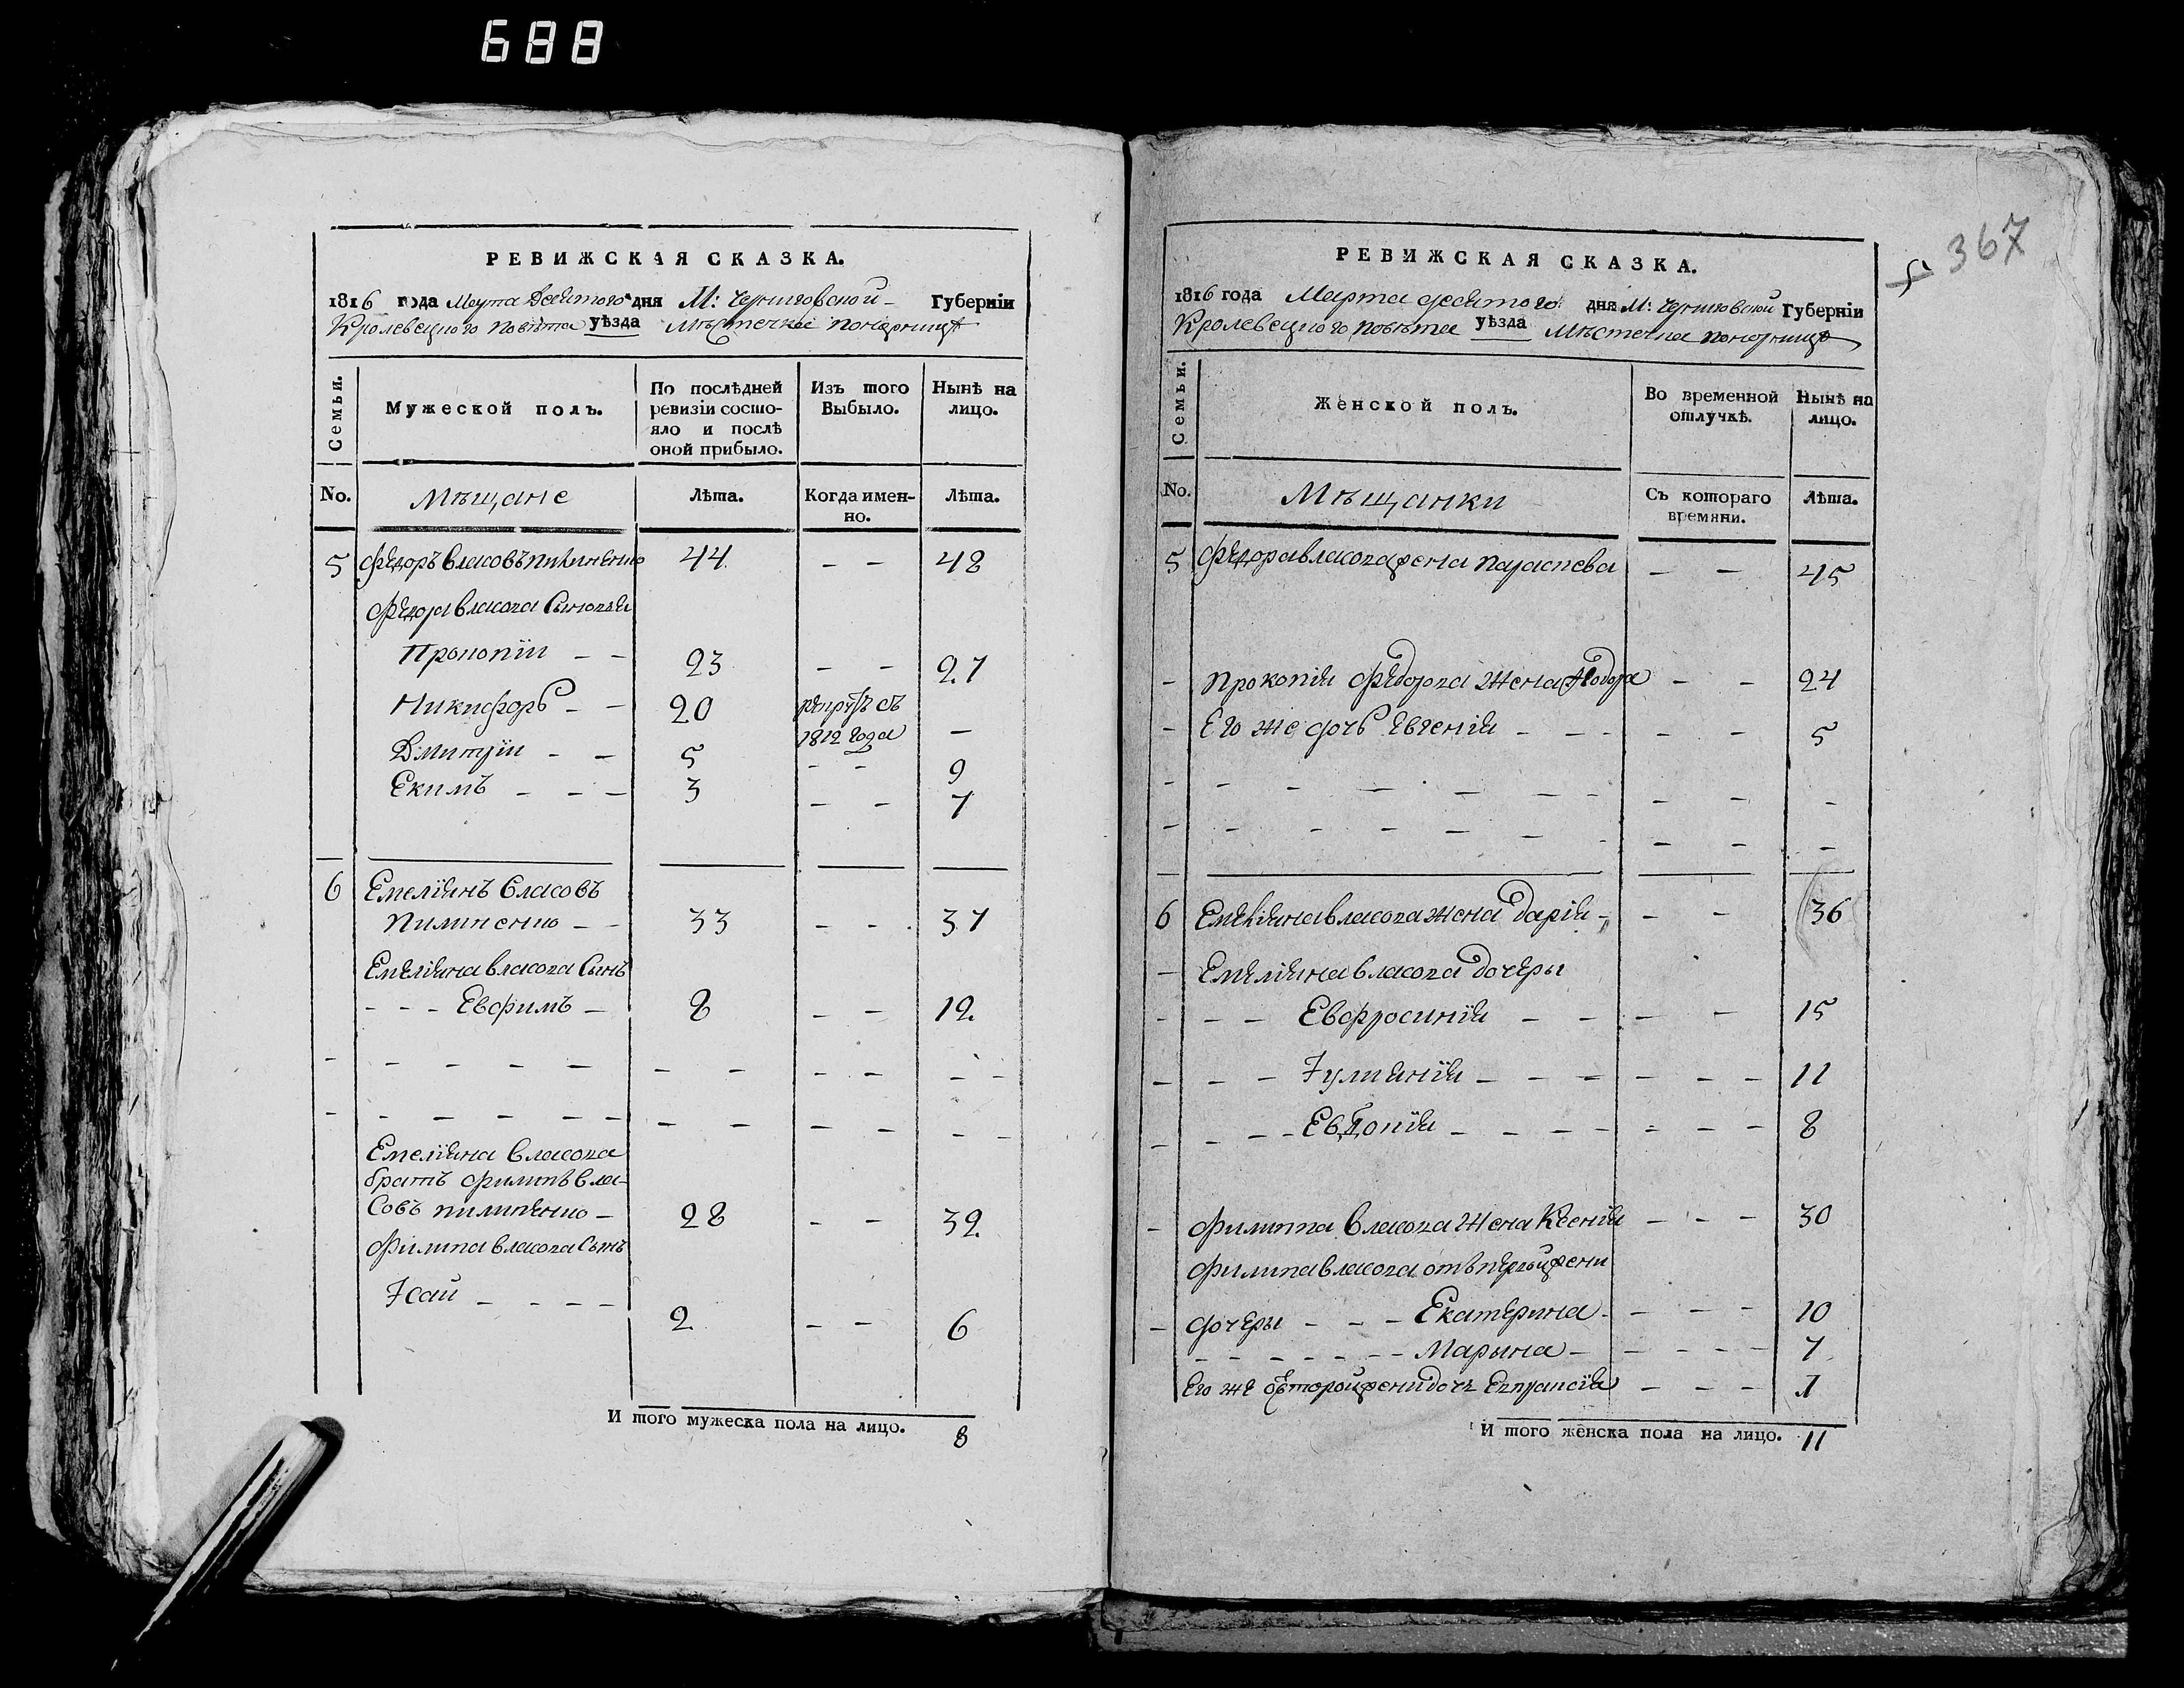 688
РЕВИЖСКАЯ СКАЗКА.
1816 года Марта Десятого дня М: Черниговской Губерніи
Кролевецкого Повѣта уѣзда Мѣстечка Понорницѣ
Семьи.
Мужеской полъ.
По послѣдней ревизіи состо-
яло и послѣ оной прибыло.
Изъ того Выбыло.
Нынѣ на лицо.
No.
Мѣщане
Лѣта.
Когда имен-
но.
Лѣта.
5 Федоръ власовъ пилипенко 44 – – 48
Федора власова Сыновья
Прокопіи – – 23 – – 27
Никифоръ – – 20 рекрутъ съ
1812 года –
Дмитріи – – 5 – – 9
Екимъ – – – 3 – – 7
6 Емеліянъ власовъ
пилипенко – – 33 – – 37
Емеліяна власова Сынъ
– – – Евфимъ – 8 – – 12.
Емеліяна власова
братъ филипъ вла-
совъ пилипенко – 28 – – 32.
Филипа власова Сынъ
Ісаи – – – – 2 – – 6
И того мужеска пола на лицо. 8
367
РЕВИЖСКАЯ СКАЗКА.
1816 года Марта десятого дня М: Черниговской Губерніи
Кролевецкого повѣта уѣзда Мѣстечка понорницѣ
Семьи.
Женской полъ.
Во временной отлучкѣ.
Нынѣ на лицо.
No.
Мѣщанки
Съ котораго времяни.
Лѣта.
5 Федора власова жена параскева – – 45
– прокопія федорова жена – – 24
– Его же дочь евгенія – – – – – 5
6 Емеліяна власова жена дарія – – – 36
– Емеліяна власова дочеры
– – – Евфросинія – – – – 15
– – – Іулиянія – – – – – – 11
– – – – Евдокія – – – – – – – 8
– филиппа власова жена Ксенія – – – 30
филипа власова отъ первой жени
– дочеры – – – Екатерина – – – – 10
– – – – – – – Марына – – – – – 7
Его же отъ второй жени дочь – – – 1
И того женска пола на лицо. 11